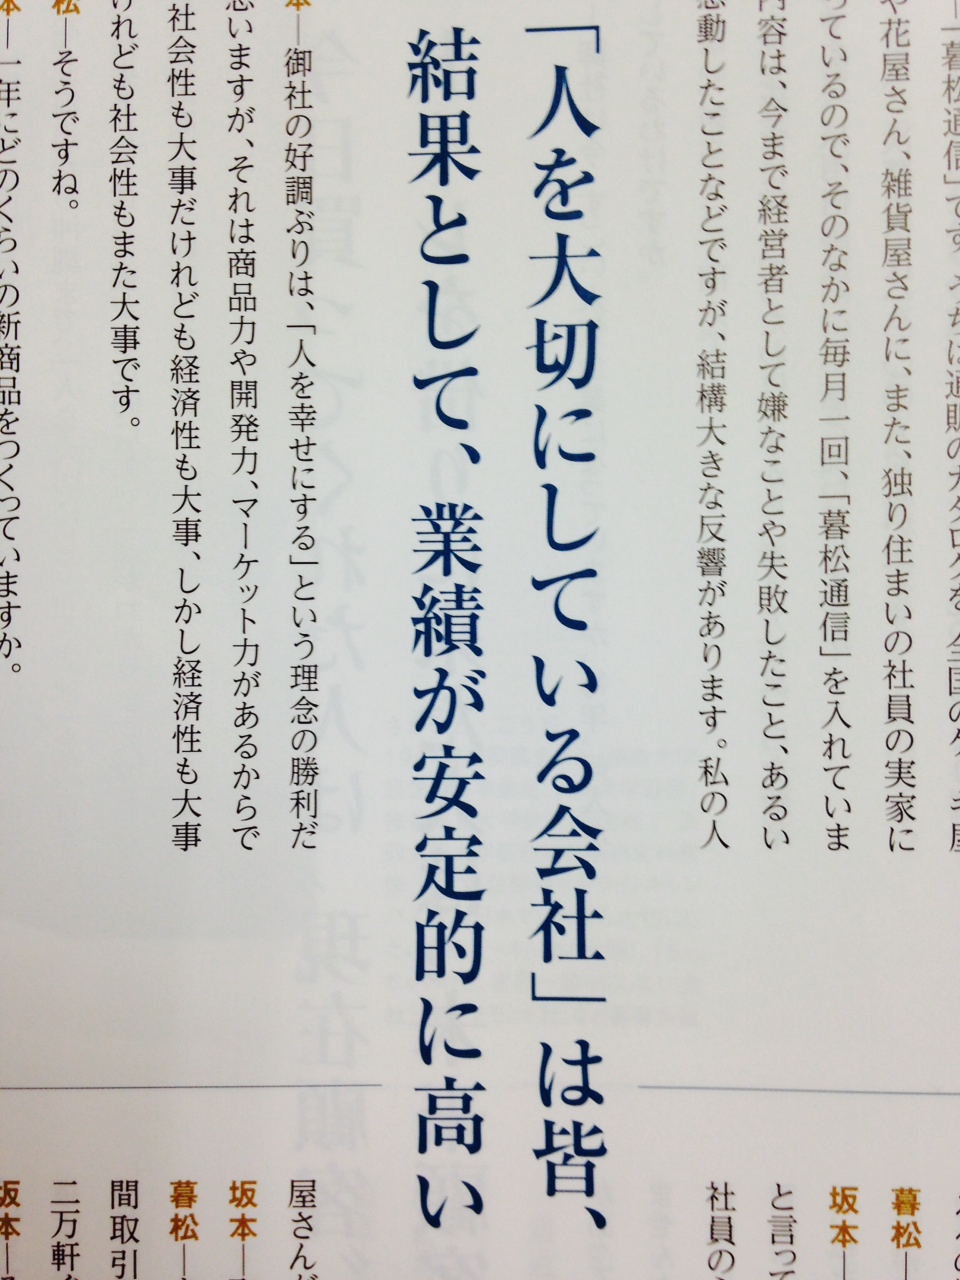 「暮松通信」です。うちは通販のカタログを、全国のケーキ屋
や花屋さん、雑貨屋さんに、また、独り住まいの社員の実家に
っているので、そのなかに毎月一回、「暮松通信」を入れていま
内容は、今まで経営者として嫌なことや失敗したこと、あるい
感動したことなどですが、結構大きな反響があります。私の人
「人を大切にしている会社」は皆、
結果として、業績が安定的に高い
本―御社の好調ぶりは、「人を幸せにする」という理念の勝利だ
思いますが、それは商品力や開発力、マーケット力があるからで
社会性も大事だけれども経済性も大事、しかし経済性も大事
けれども社会性もまた大事です。
松―そうですね。
本―一年にどのくらいの新商品をつくっていますか。
暮松―
坂本―
と言って
社員の
屋さんが
坂本―
暮松―
間取引
二万軒
坂本―